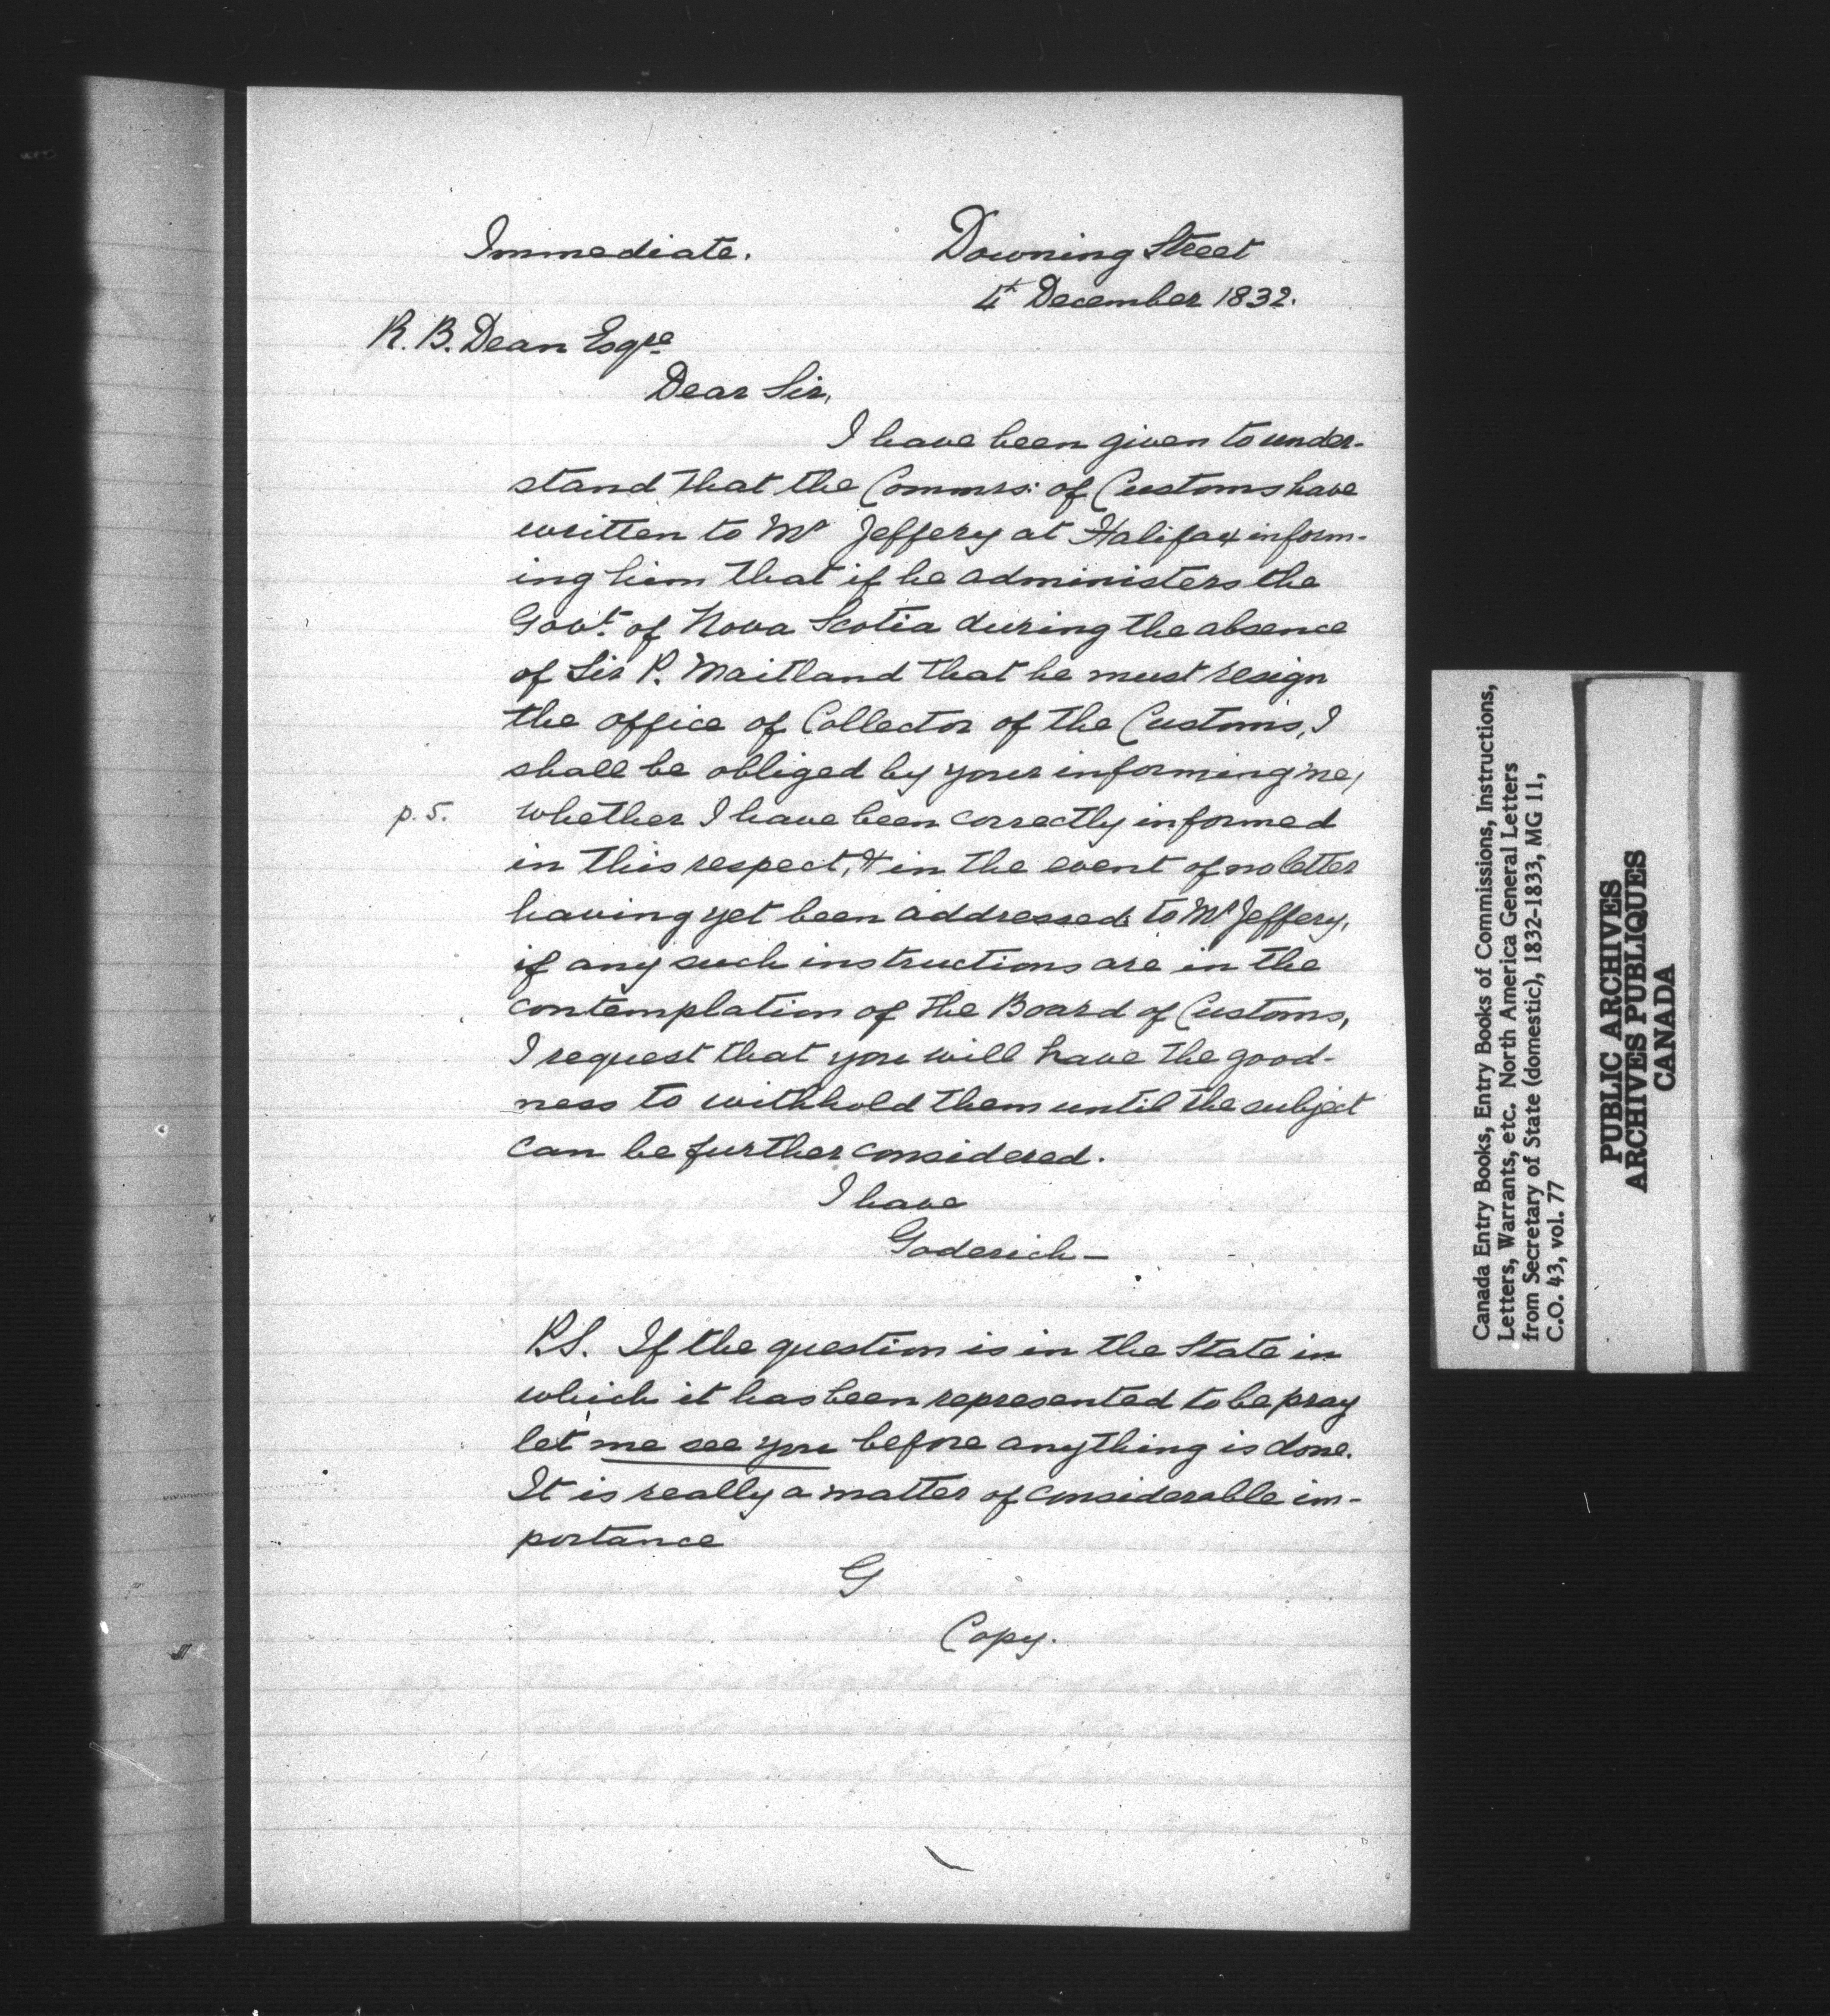 Immediate.
Downing Street
4th December 1832.
R. B. Dean Esqre
Dear Sir,
I have been given to under-
stand that the Commrs: of Customs have
written to Mr Jeffery at Halifax inform-
ing him that if he administers the
Govt. of Nova Scotia during the absence
of Sir P. Maitland that he must resign
the office of Collector of the Customs, I
shall be obliged by your informing me,
p. 5. whether I have been correctly informed
in this respect, & in the event of no letter
having yet been addressed to Mr Jeffery,
if any such instructions are in the
contemplation of the Board of Customs,
I request that you will have the good-
ness to withhold them until the subject
can be further considered.
I have
Goderich—
P.S. If the question is in the State in
which it has been represented to be pray
let me see you before anything is done.
It is really a matter of considerable im-
portance
G
Copy.
Canada Entry Books, Entry Books of Commissions, Instructions,
Letters, Warrants, etc. North America General Letters
from Secretary of State (domestic), 1832-1833, MG 11,
C.O. 43, vol. 77
PUBLIC ARCHIVES
ARCHIVES PUBLIQUES
CANADA